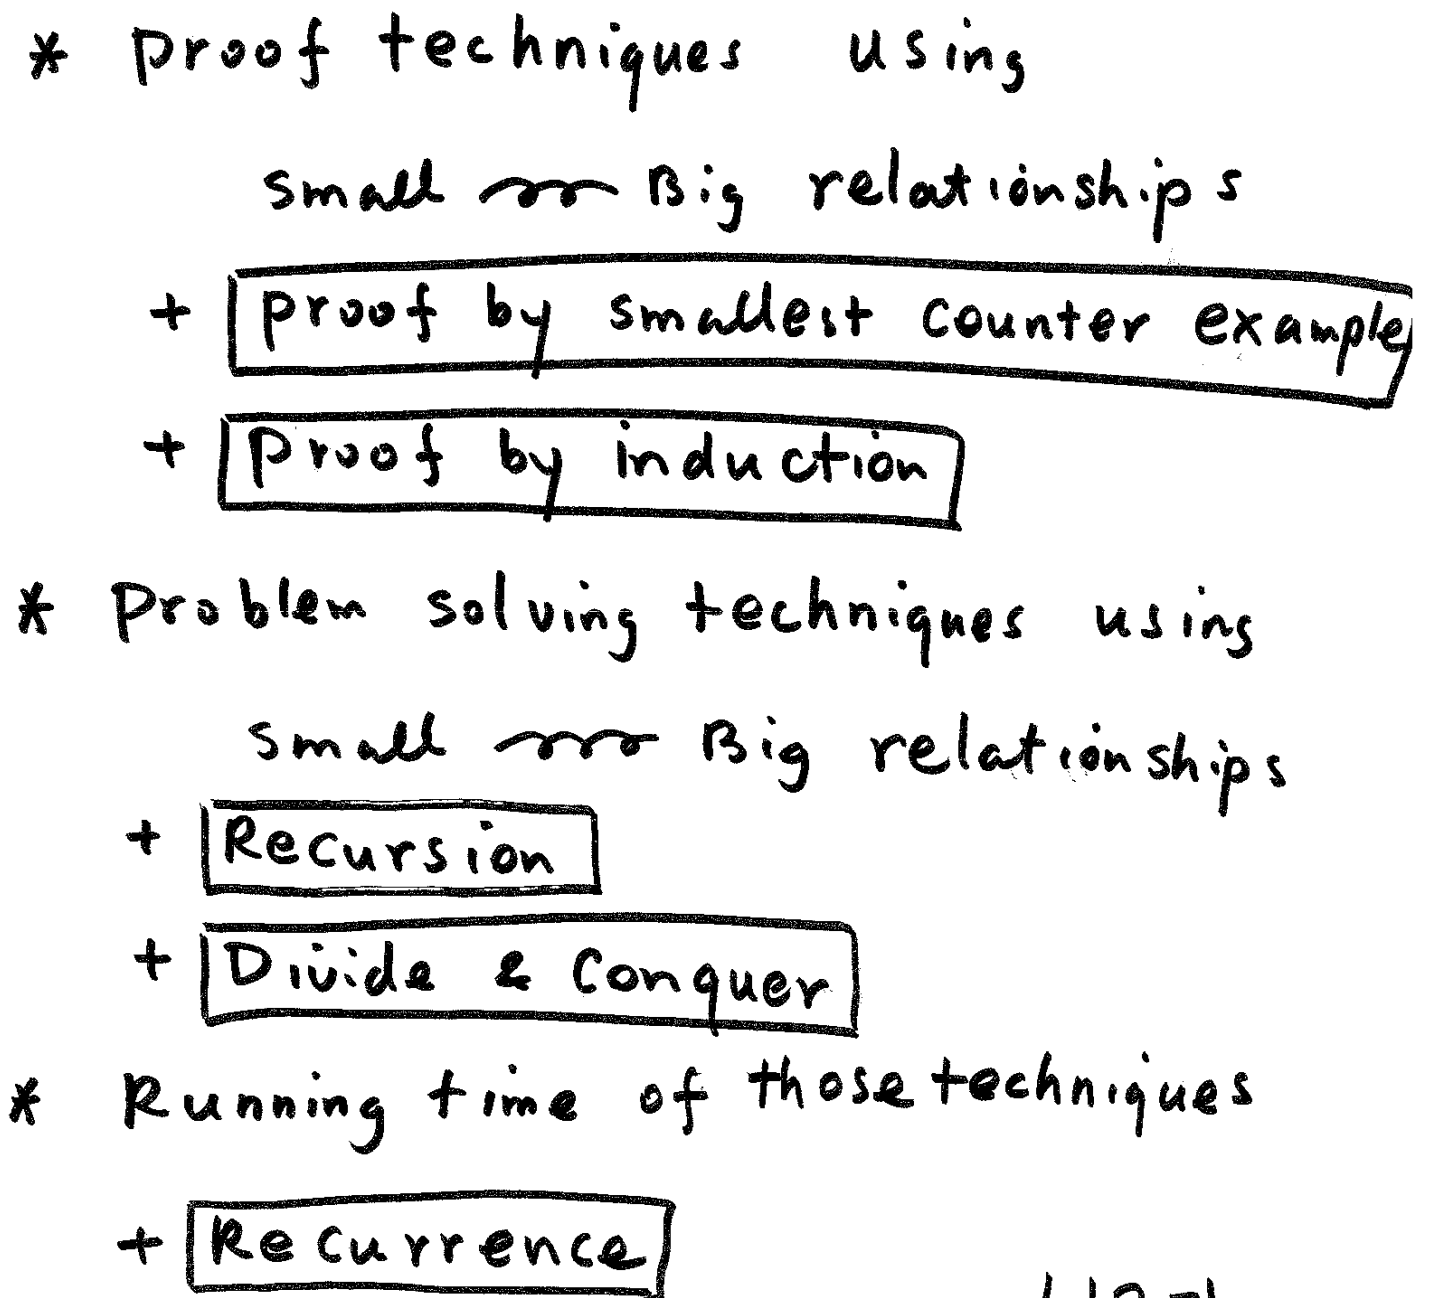 * Proof techniques using
small Big relationships
+ Proof by smallest counter example
+ Proof by induction
* Problem solving techniques using
small Big relationships
+ Recursion
+ Divide & Conquer
* Running time of those techniques
+ Recurrence